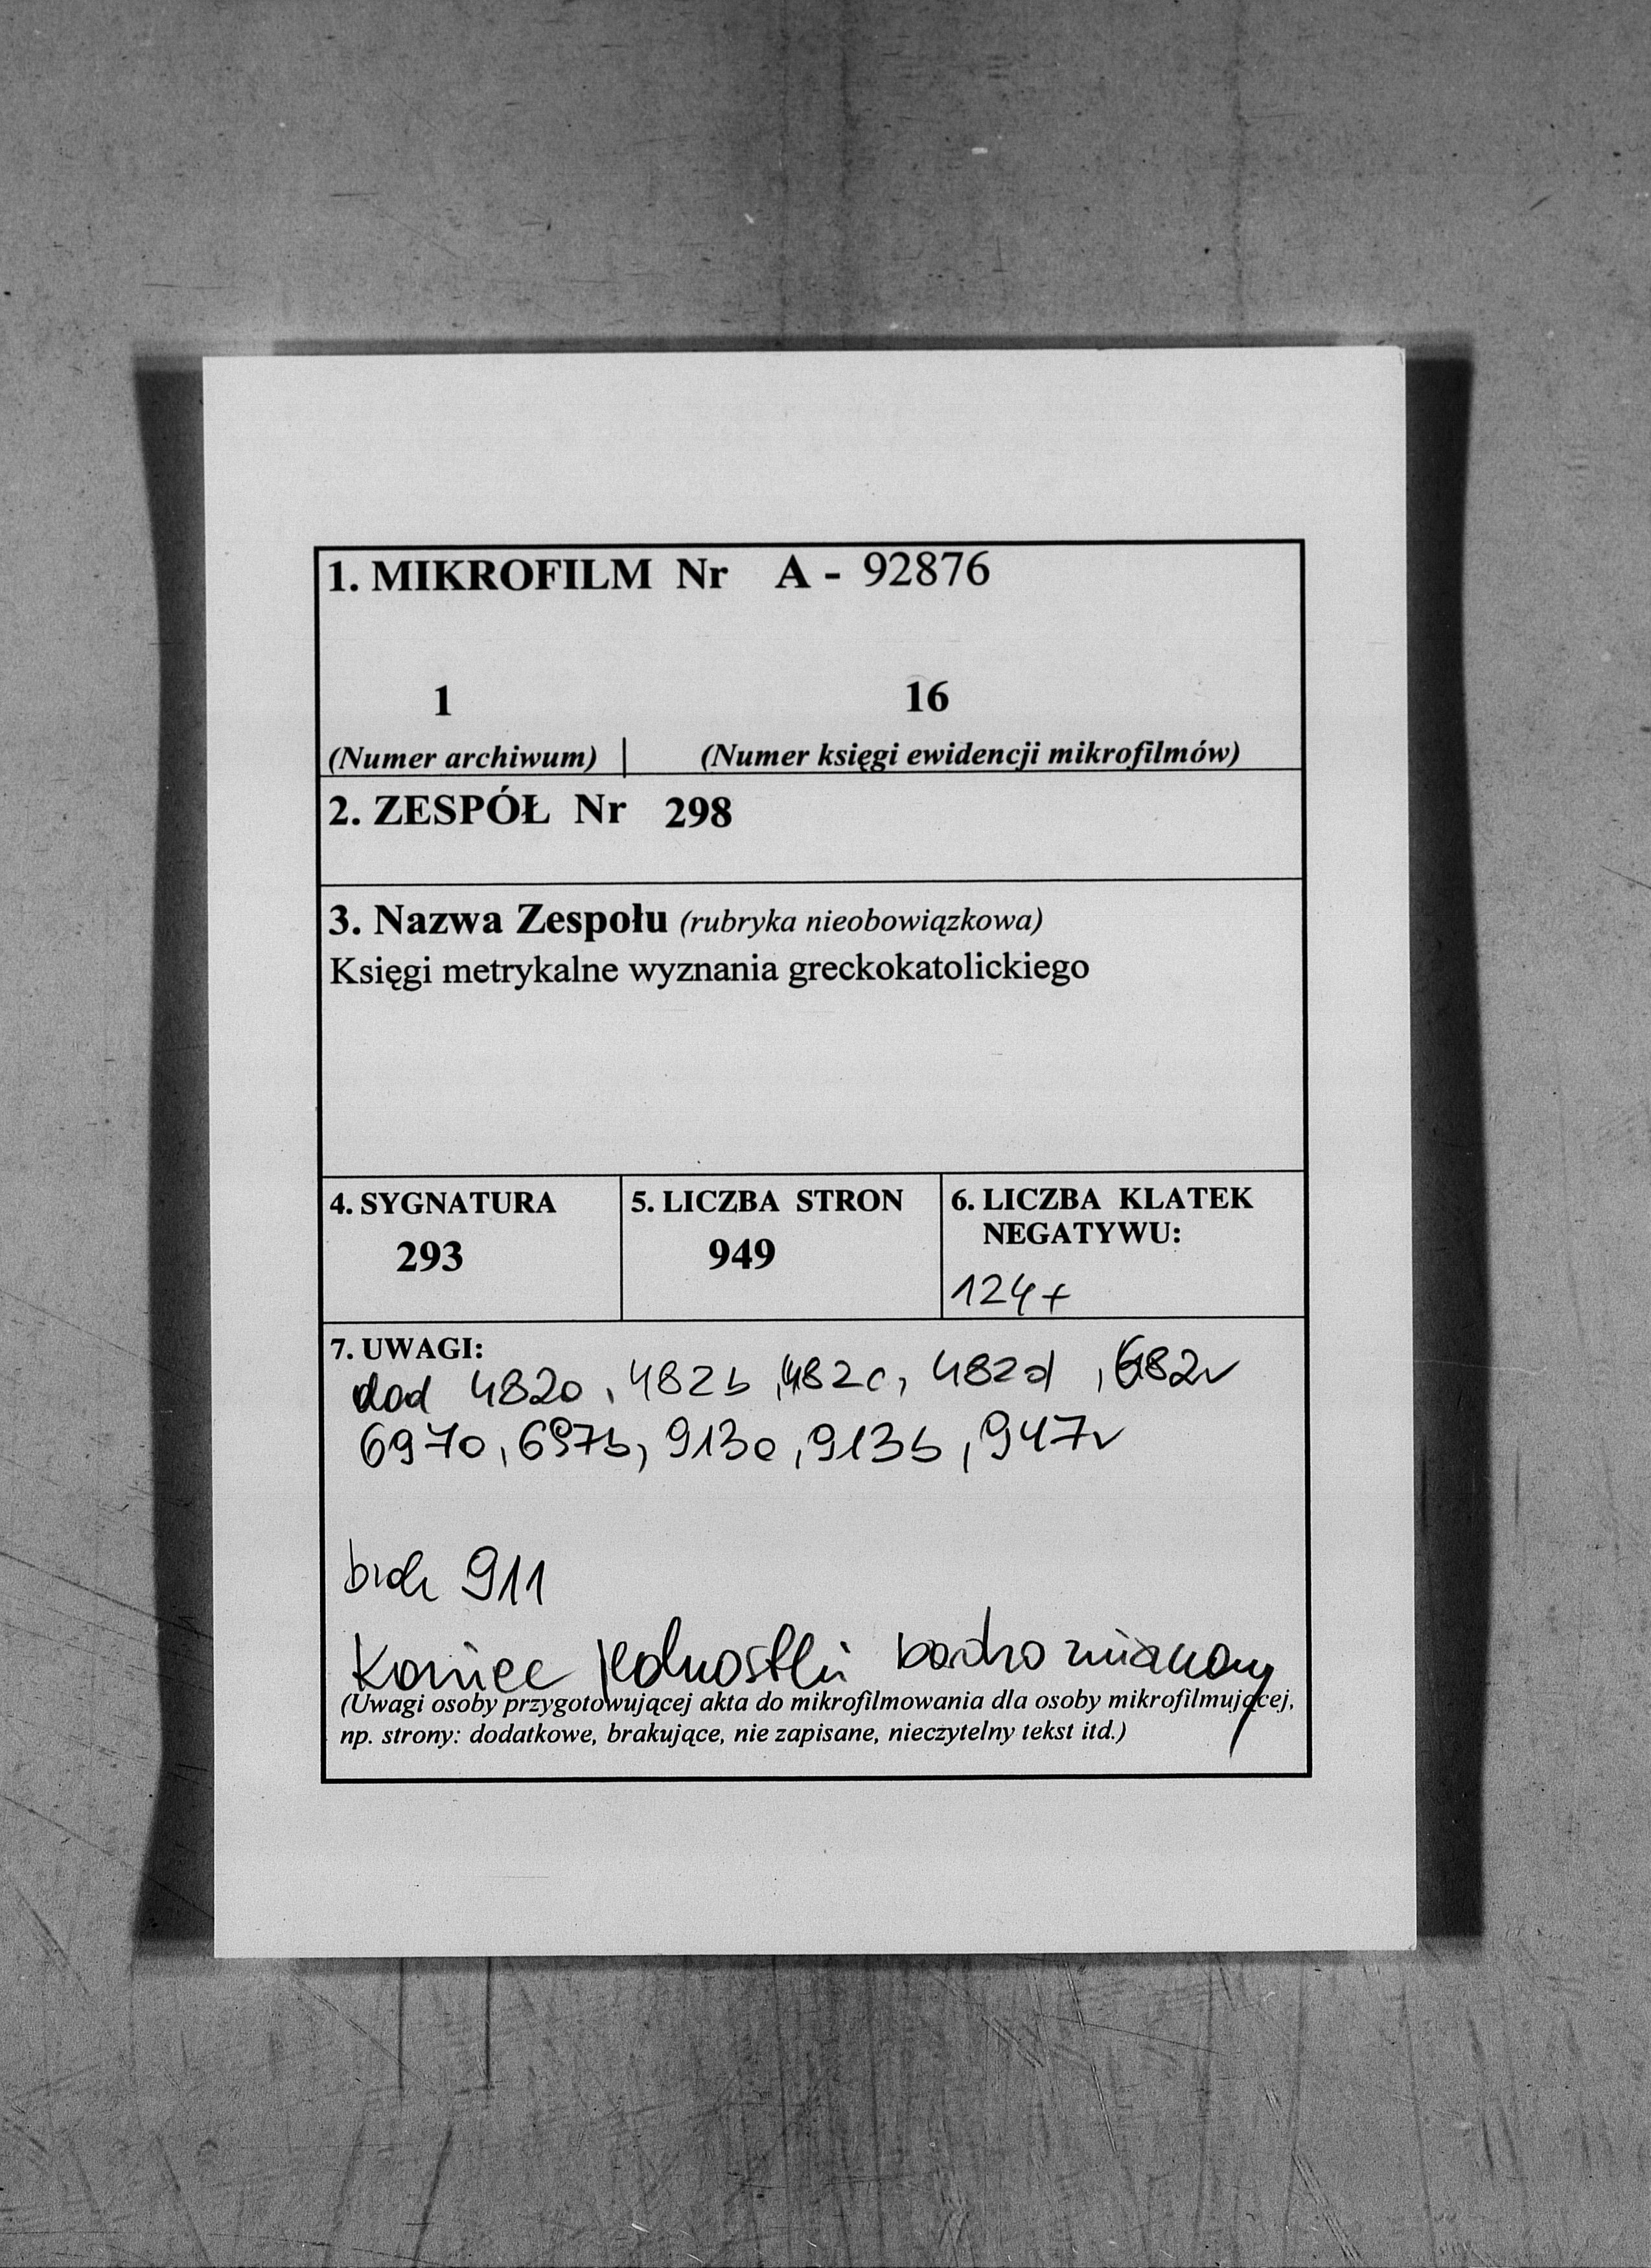 1. MIKROFILM Nr A - 92876
1 16
(Numer archiwum) (Numer księgi ewidencji mikrofilmów)
2. ZESPÓŁ Nr 298
3. Nazwa Zespołu (rubryka nieobowiązkowa)
Księgi metrykalne wyznania greckokatolickiego
4. SYGNATURA 5. LICZBA STRON 6. LICZBA KLATEK
NEGATYWU:
293 949
124+
7. UWAGI:
dod 482a, 482b, 482c, 482d, 682v
697a, 697b, 913a, 913b, 947v
brak 911
Koniec jednostki bardzo
(Uwagi osoby przygotowującej akta do mikrofilmowania dla osoby mikrofilmującej,
np. strony: dodatkowe, brakujące, nie zapisane, nieczytelny tekst itd.)